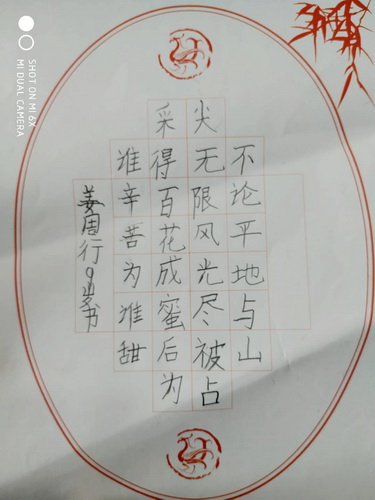 不论平地与山
尖无限风光尽被占
采得百花成蜜后为
谁辛苦为谁甜
姜周行9岁书
SHOT ON MI 6X
MI DUAL CAMERA